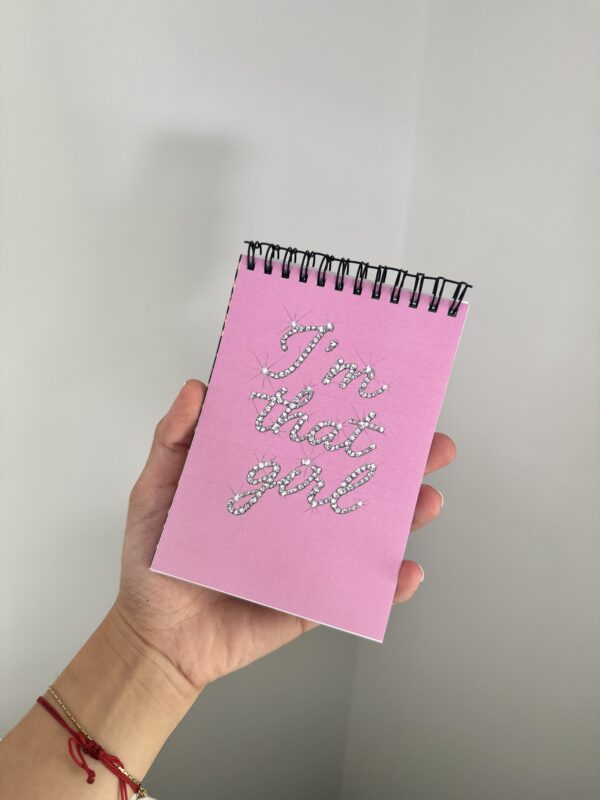 I'm
that
girl